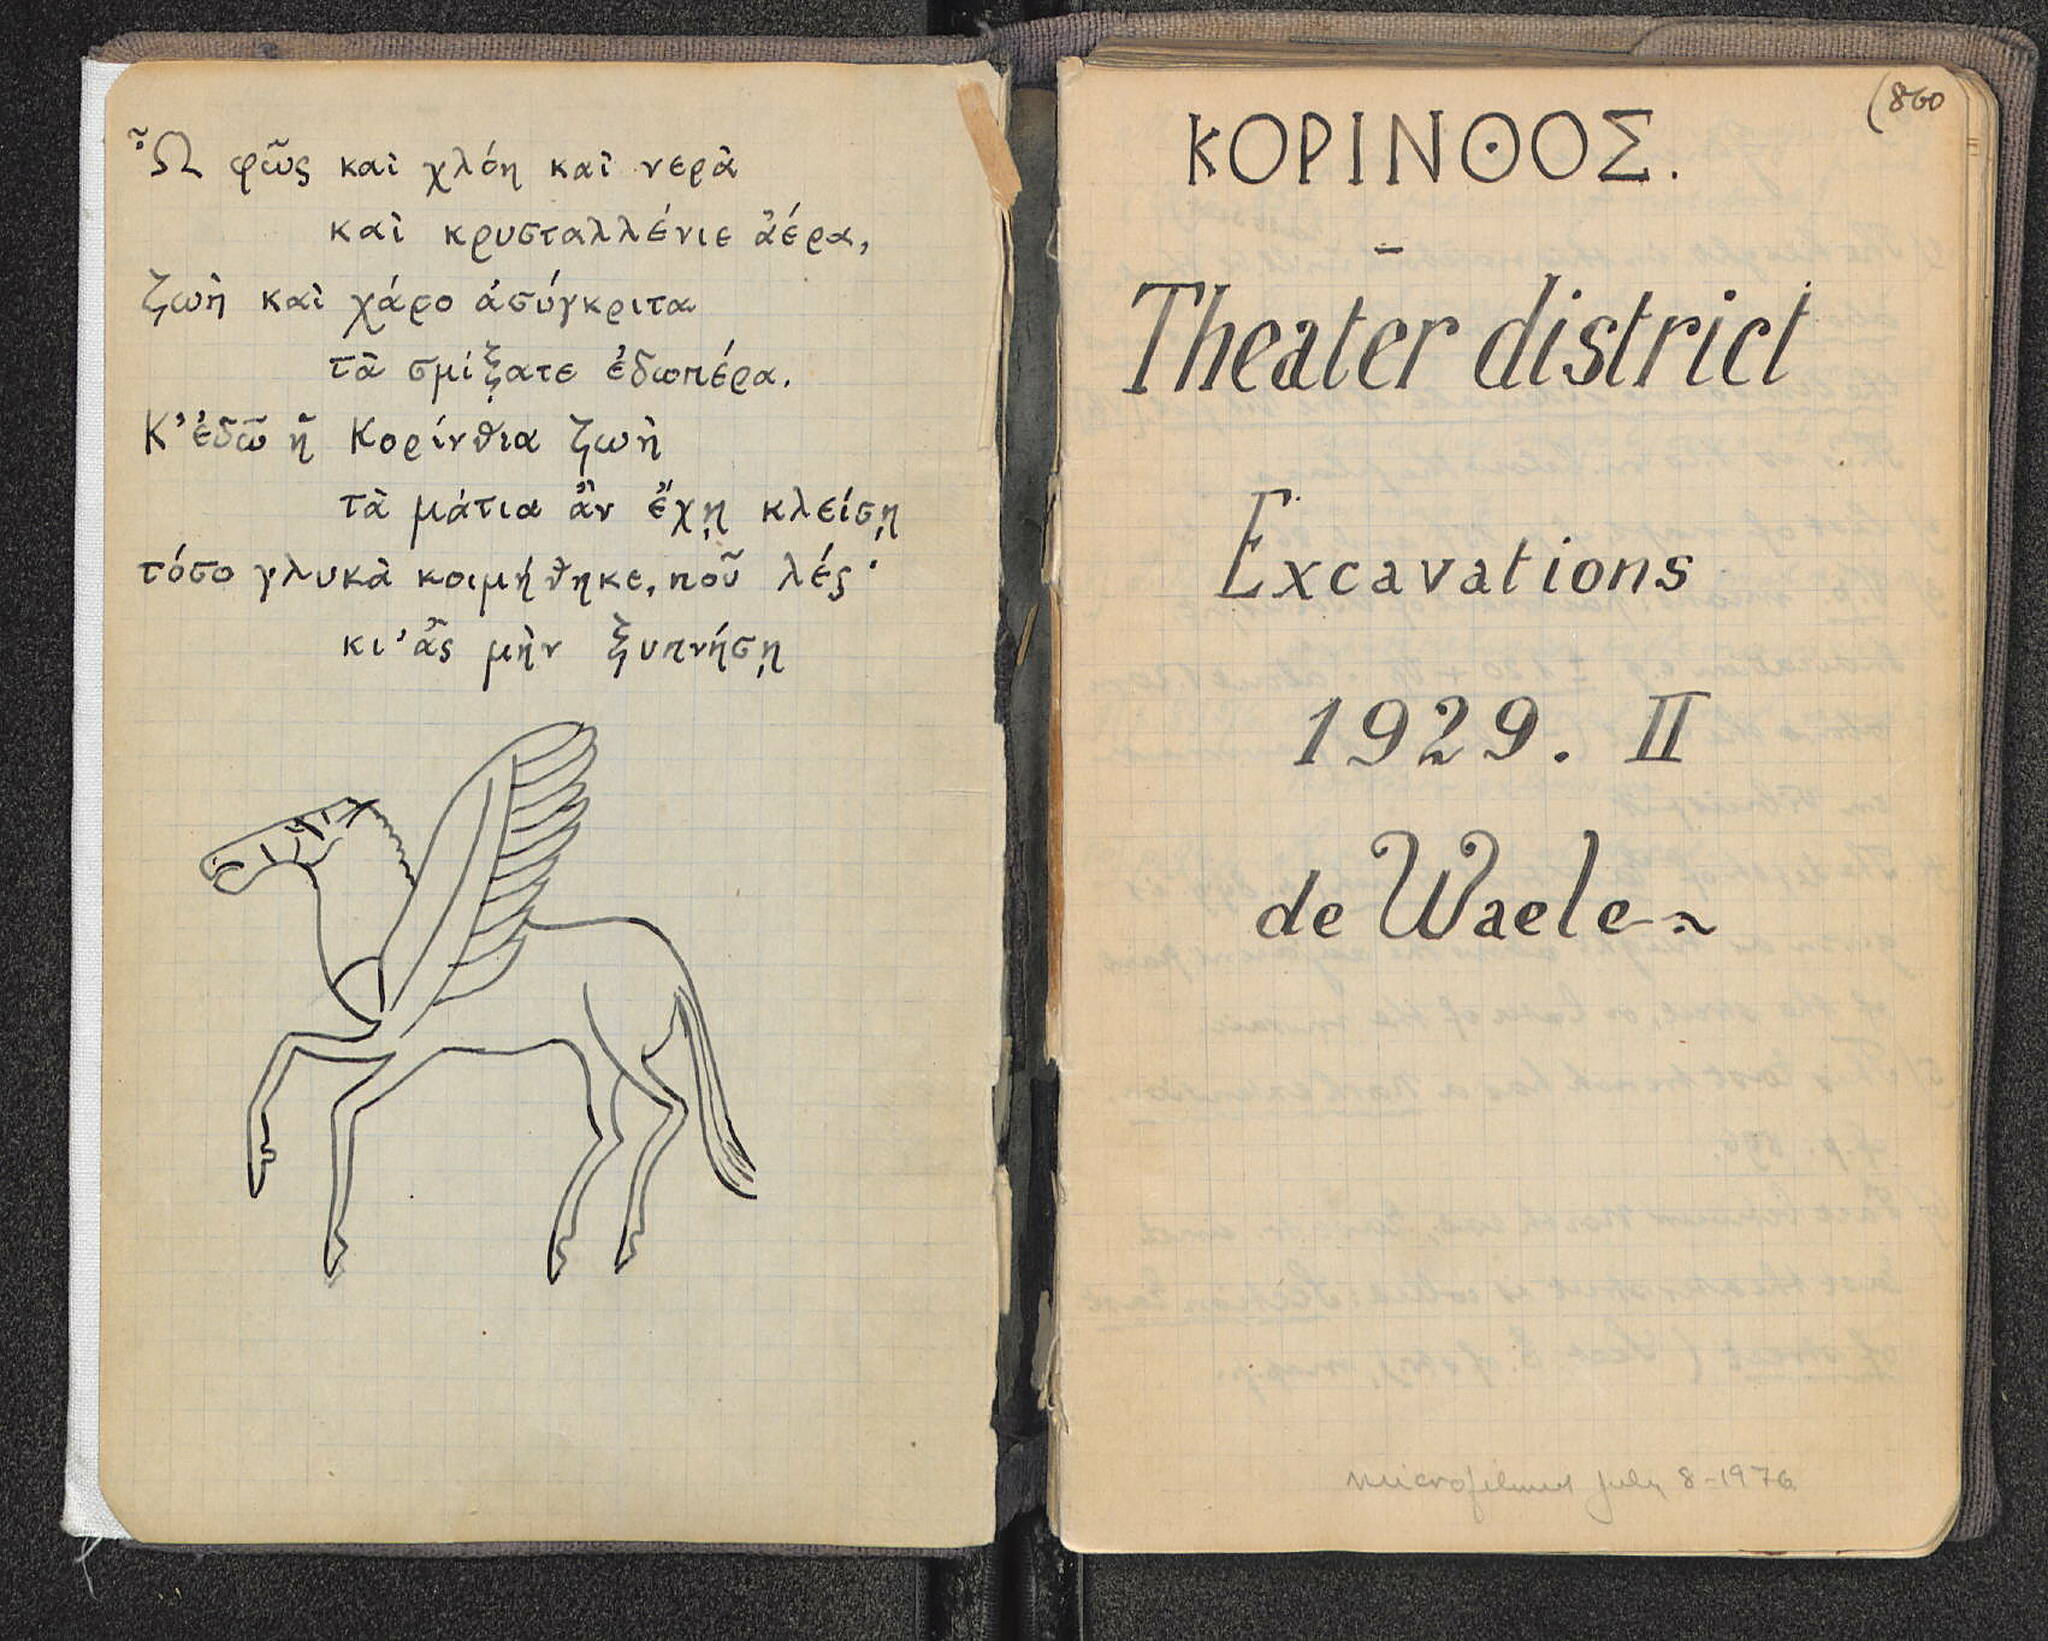 Ὦ φῶς καὶ χλόη καὶ νερὰ
καὶ κρυσταλλένιε ἀέρα,
ζωὴ καὶ χάρο ἀσύγκριτα
τὰ σμίξατε ἐδωπέρα.
Κ' ἐδῶ ἡ Κορίνθια ζωὴ
τὰ μάτια ἂν ἔχῃ κλείσῃ
τόσο γλυκὰ κοιμήθηκε, ποῦ λές·
κι' ἂς μὴν ξυπνήσῃ
(860
ΚΟΡΙΝΘΟΣ.
Theater district
Excavations
1929. II
de Waele
microfilmed July 8-1976